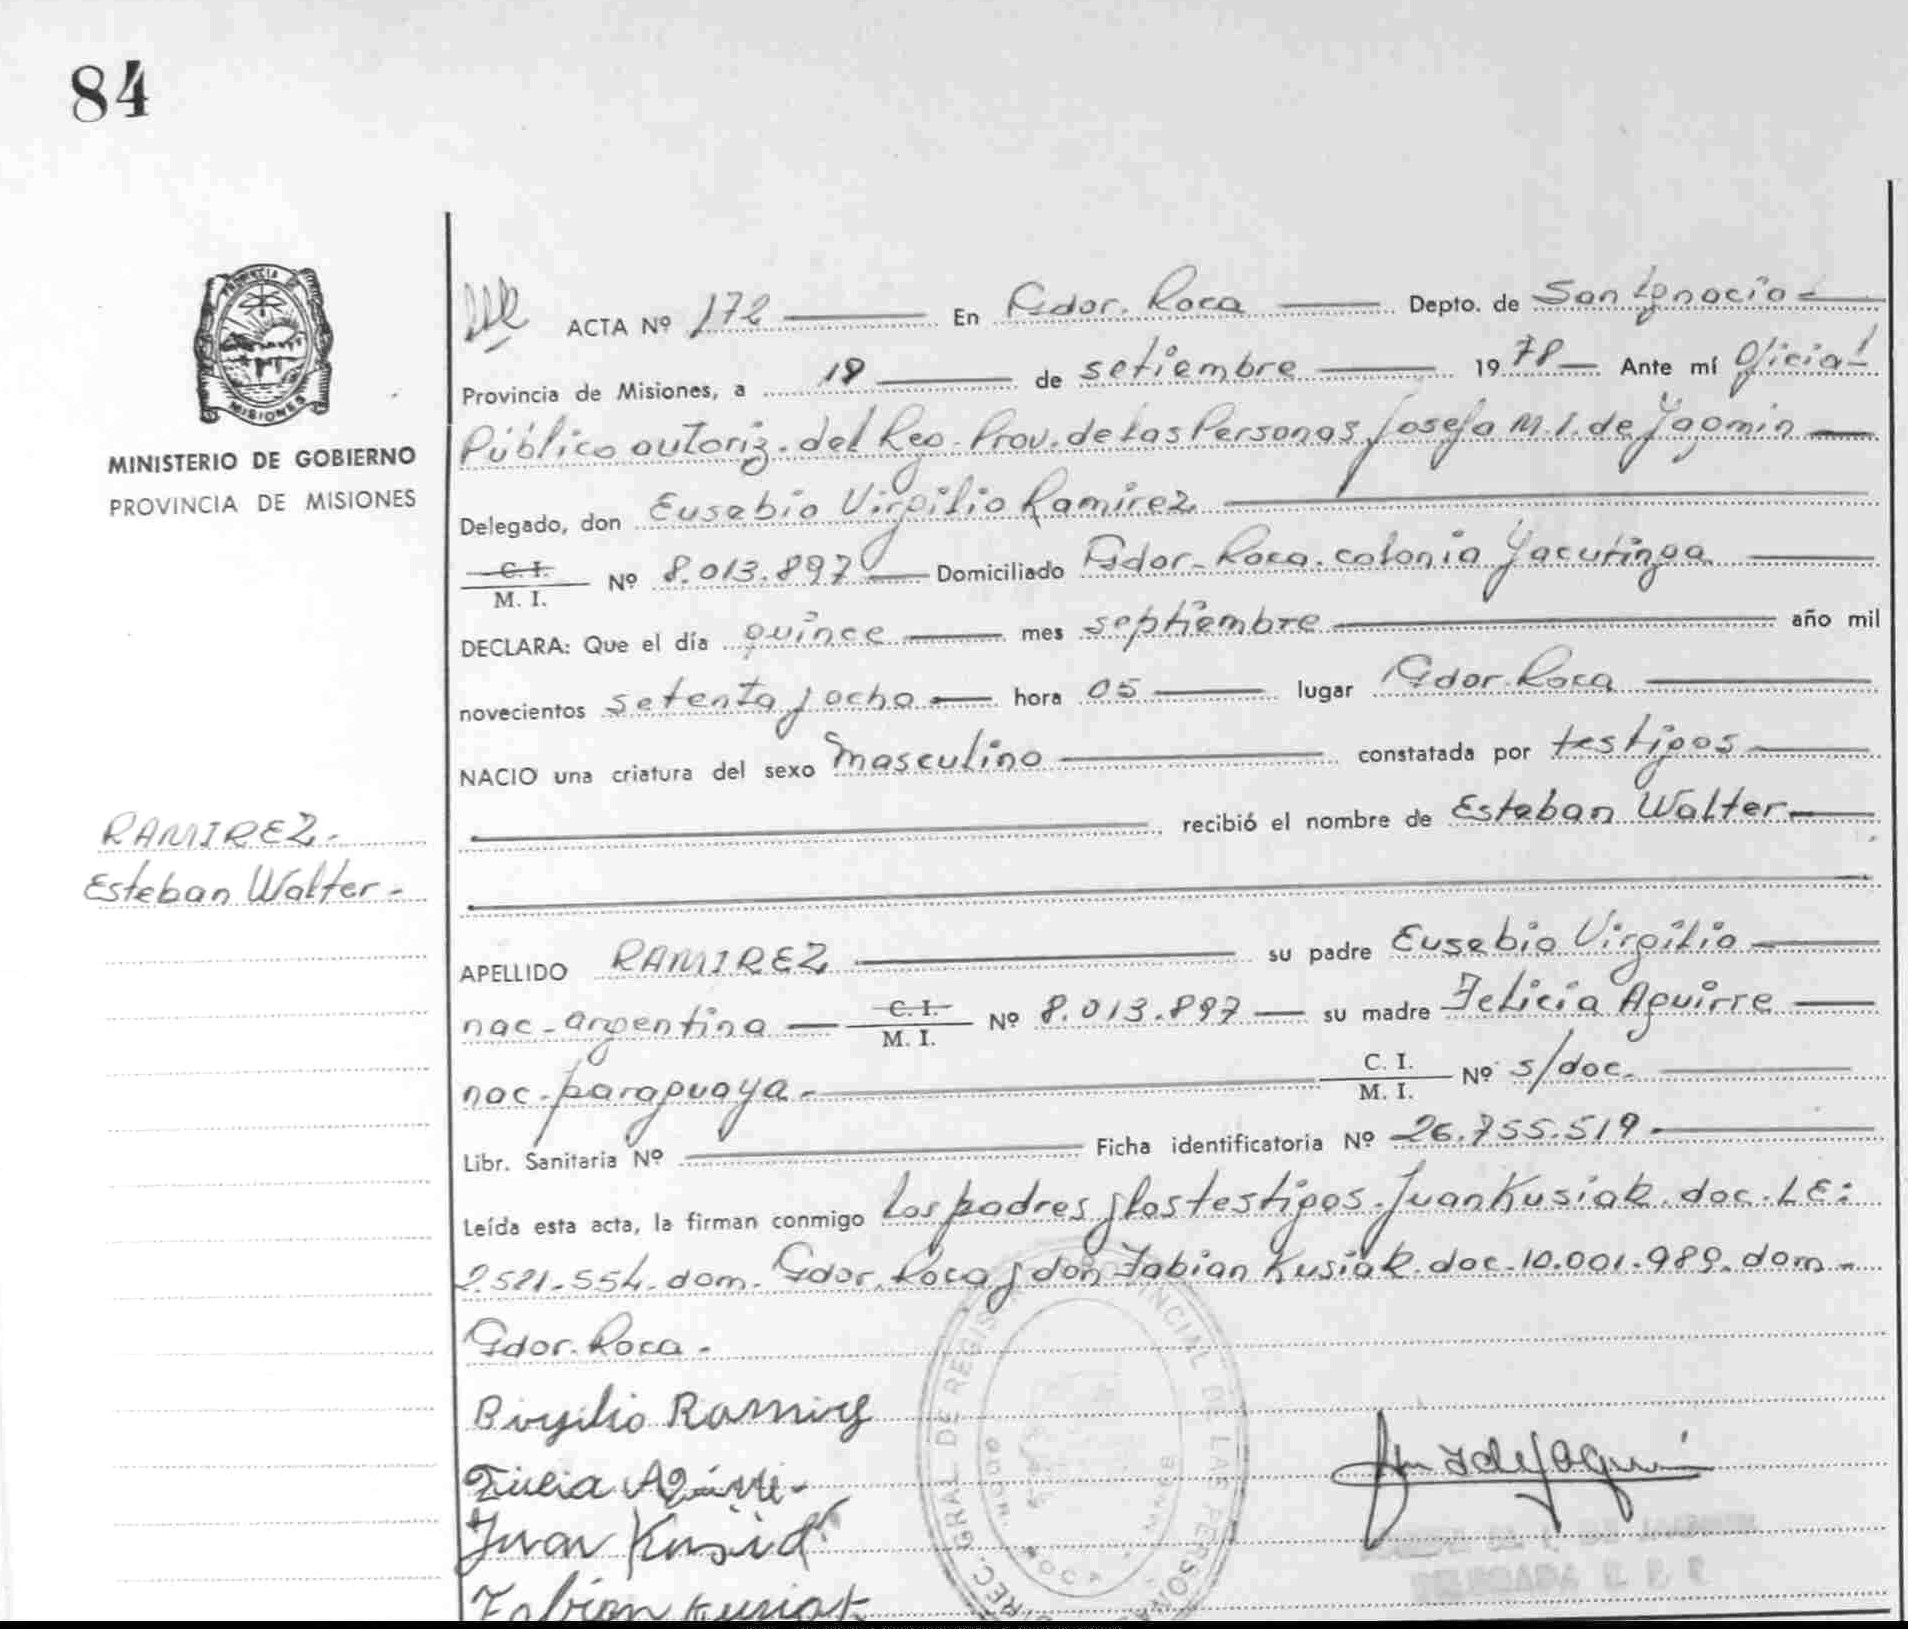 84
PROVINCIA DE
MISIONES
MINISTERIO DE GOBIERNO
PROVINCIA DE MISIONES
RAMIREZ.-
Esteban Walter.-
ACTA Nº 172 En Gdor. Roca Depto. de San Ignacio
Provincia de Misiones, a 18 de setiembre 1978 Ante mí Oficial
Público autoriz. del Reg. Prov. de Las Personas Josefa M. I. de Yagmin
Delegado, don Eusebio Virgilio Ramirez
C. I.
M. I. Nº 8.013.897 Domiciliado Gdor. Roca. colonia Yacutinga
DECLARA: Que el día quince mes septiembre año mil
novecientos setenta y ocho hora 05 lugar Gdor. Roca
NACIO una criatura del sexo masculino constatada por testigos
recibió el nombre de Esteban Walter
APELLIDO RAMIREZ su padre Eusebio Virgilio
nac. argentina C. I. M. I. Nº 8.013.897 su madre Felicia Aguirre
nac. paraguaya.- C. I. M. I. Nº s/doc.
Libr. Sanitaria Nº Ficha identificatoria Nº 26.755.519.
Leída esta acta, la firman conmigo Los padres y los testigos. Juan Kusiak. doc. L.E:
2.521.554. dom. Gdor. Roca y don Fabian Kusiak. doc. 10.001.989. dom.-
Gdor. Roca.-
Birgilio Ramirez
Juan Kusiak
Fabian Kusiak
DIREC. GRAL. DE REGISTRO PROVINCIAL DE LAS PERSONAS
ROCA
DELEGADA R. P. P.